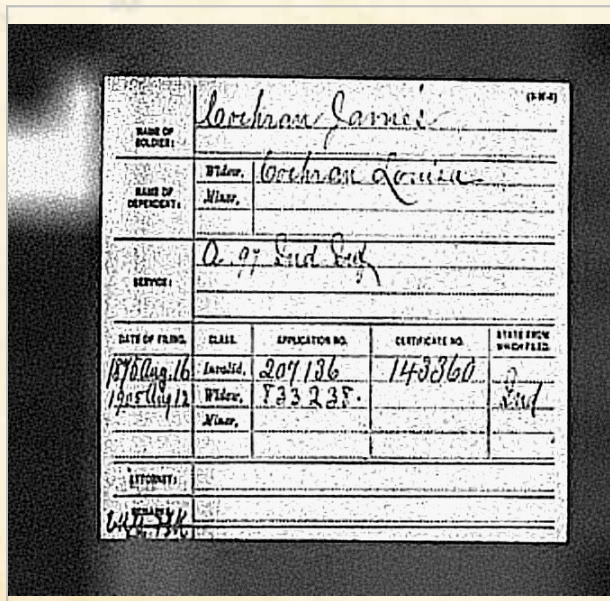 (3-H-4)
NAME OF SOLDIER: Cochran James
NAME OF DEPENDENT: Widow, Cochran Louisa
Minor,
SERVICE: A. 97 Ind Inf
DATE OF FILING. CLASS. APPLICATION NO. CERTIFICATE NO. STATE FROM WHICH FILED.
1875 Aug. 16 Invalid, 207136 143360
1905 Aug 12 Widow, 833238. Ind
Minor,
ATTORNEY:
REMARKS: